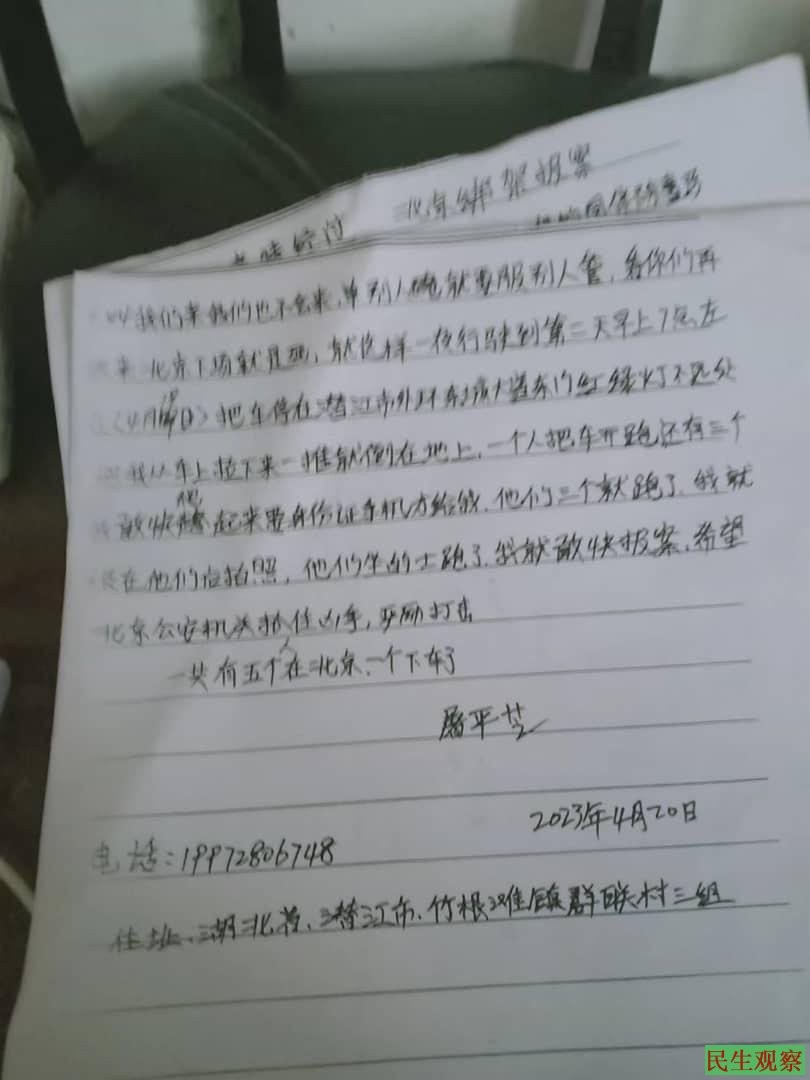 北京绑架报案
叫我们来我们也不会来,单别人碗就要服别人管,看你们再
来北京下场就是死,就这样一夜行驶到第二天早上7点左
把车停在潜江市外环东大道东门红绿灯不远处
我从车上拉下来一推就倒在地上,一个人把车开跑还有三个
我敢快起来要身份证手机才给我,他们三个就跑了,我就
在他们后拍照,他们坐的士跑了,我就敢快报案,希望
北京公安机关抓住凶手,严厉打击
一共有五个人在北京、一个下车了
屠平芝
2023年4月20日
电话:19972806748
住址、湖北省、潜江市、竹根滩镇群联村三组
民生观察